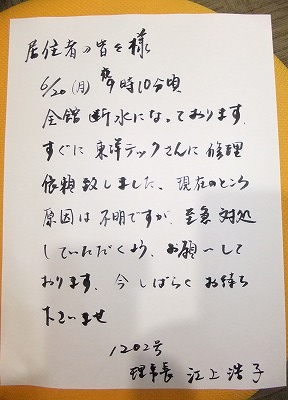 居住者の皆々様
6/20(月) 9時10分頃
全館 断水になっております。
すぐに東洋テックさんに修理
依頼致しました、現在のところ
原因は不明ですが、至急対処
していただくよう、お願いして
おります。今しばらくお待ち
下さいませ
1202号
理事長 江上浩子